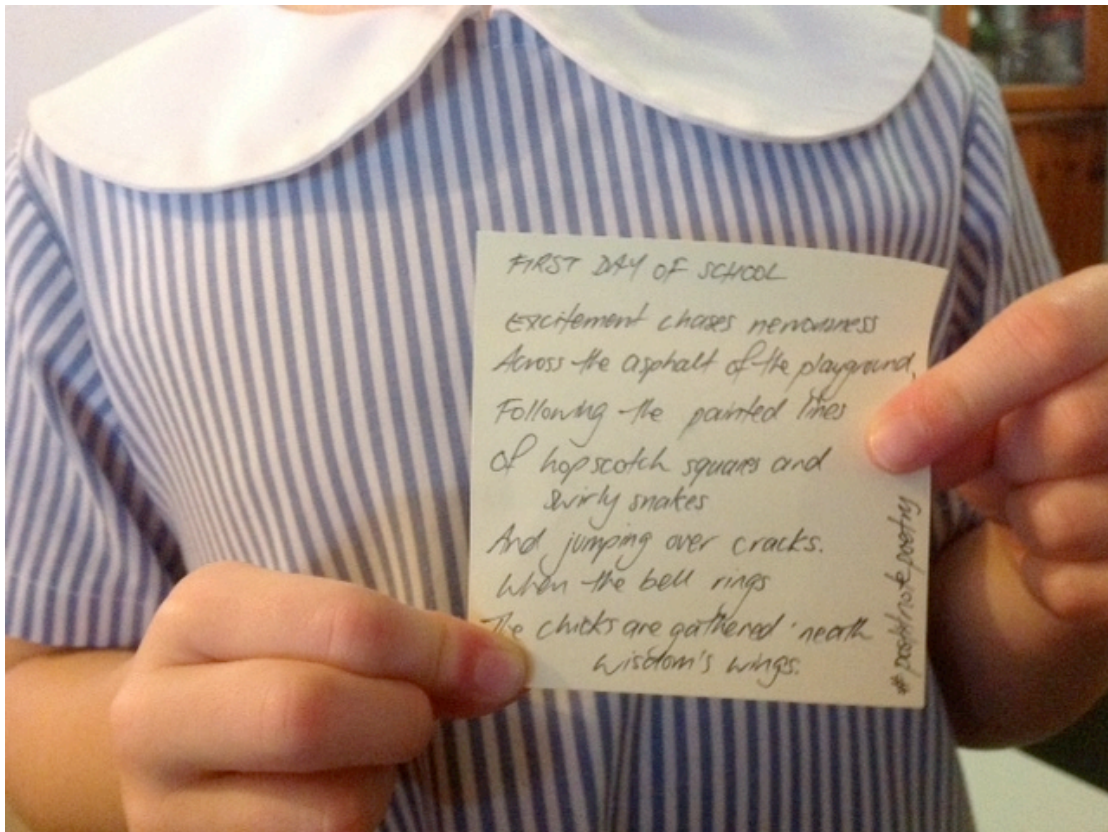 FIRST DAY OF SCHOOL
Excitement chases nervousness
Across the asphalt of the playground,
Following the painted lines
Of hopscotch squares and
swirly snakes
And jumping over cracks.
When the bell rings
The chicks are gathered 'neath
wisdom's wings.
#postitnotepoetry